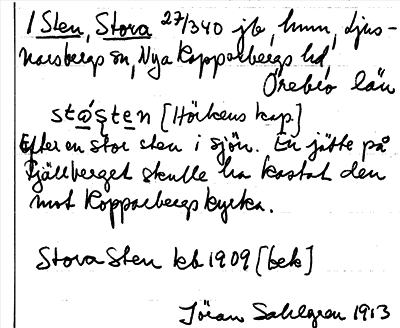 1 Sten, Stora 27/340 jb, hmn, Ljus-
narsbergs sn, Nya Kopparbergs hd,
Örebro län
stǫ́sten [Hörkens kap]
Efter en stor sten i sjön. En jätte på
Fjällberget skulle ha kastat den
mot Kopparbergs kyrka.
Stora Sten kb 1909 [bek]
Jöran Sahlgren 1913